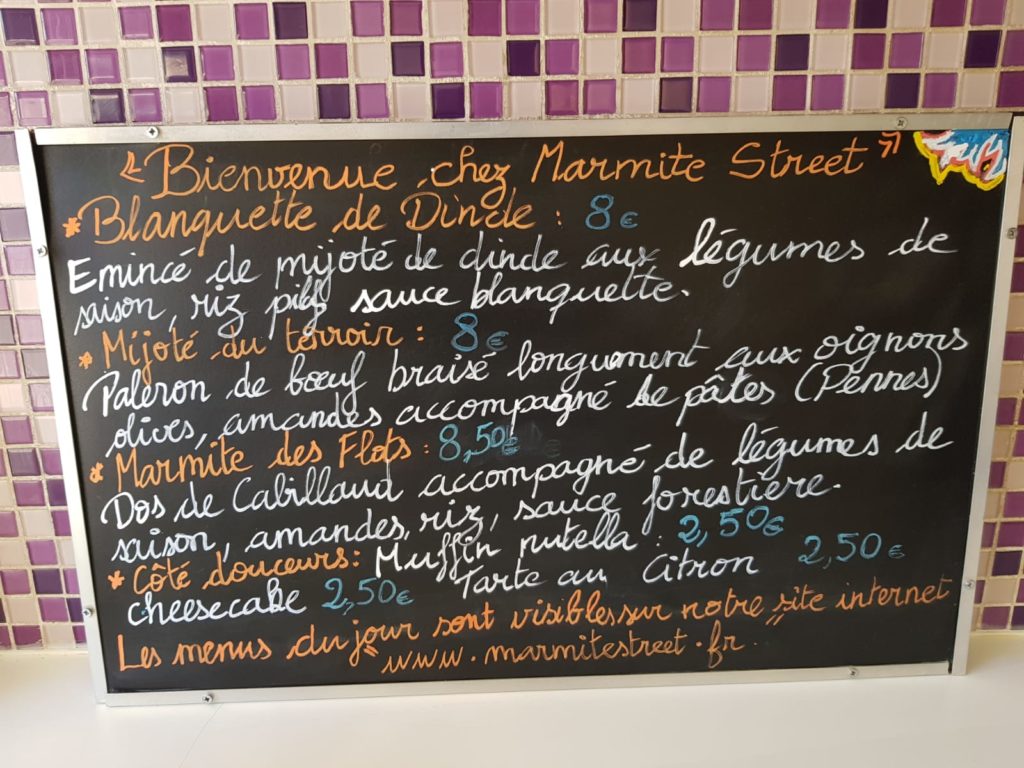 « Bienvenue chez Marmite Street »
* Blanquette de Dinde : 8 €
Emincé de mijoté de dinde aux légumes de
saison, riz pilaf sauce blanquette.
* Mijoté du terroir : 8 €
Paleron de bœuf braisé longuement aux oignons
olives, amandes accompagné de pâtes (Pennes)
* Marmite des Flots : 8,50€
Dos de Cabillaud accompagné de légumes de
saison, amandes, riz, sauce forestière.
* Côté douceurs : Muffin nutella : 2,50€
cheesecake 2,50€ Tarte au Citron 2,50€
Les menus du jour sont visibles sur notre site internet
"www.marmitestreet.fr"